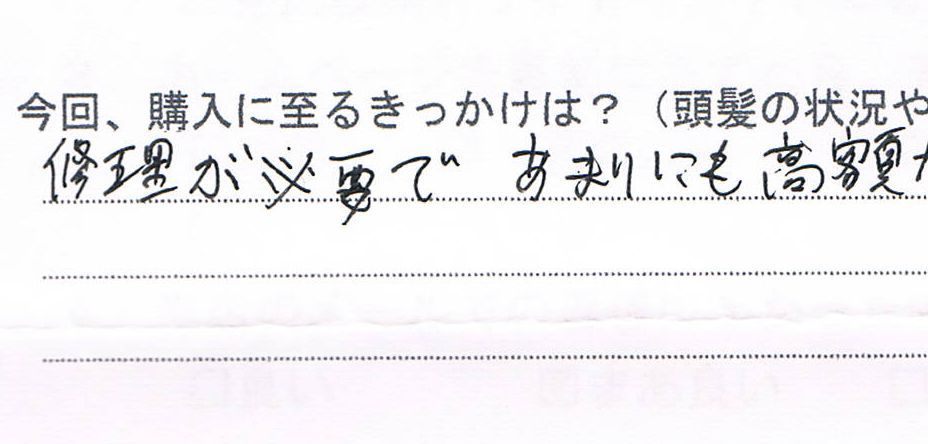 今回、購入に至るきっかけは？（頭髪の状況や
修理が必要で あまりにも高額